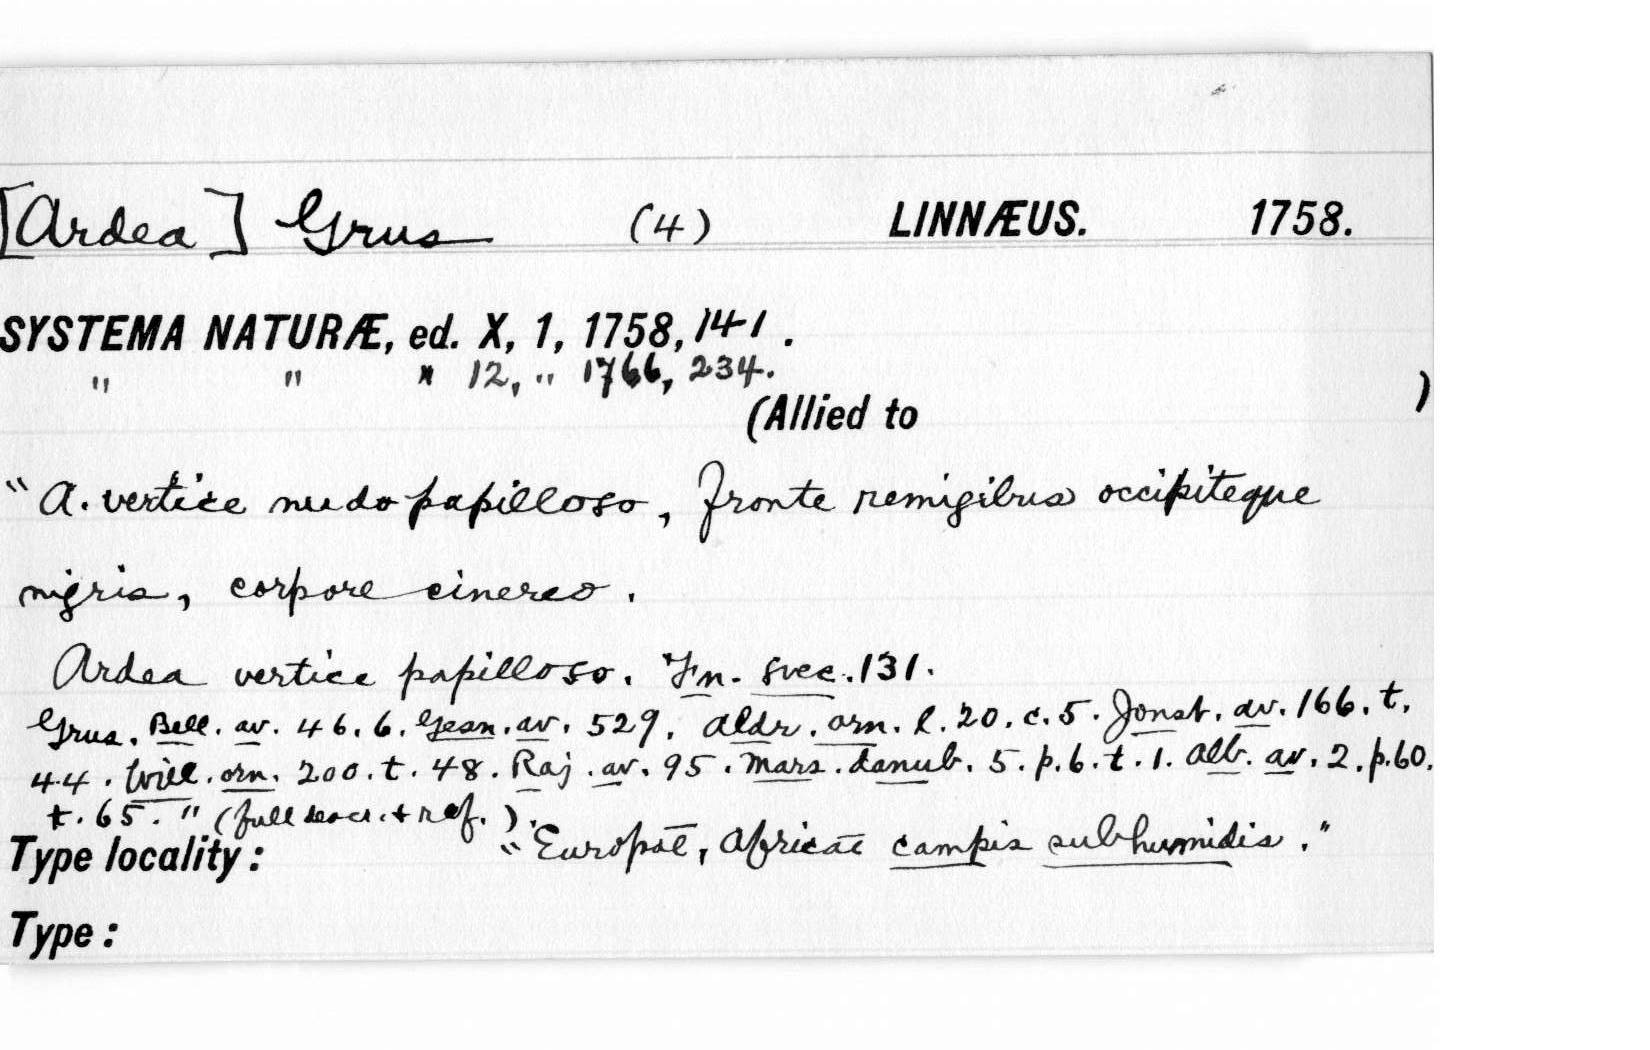 [Ardea] Grus (4) LINNÆUS. 1758.
SYSTEMA NATURÆ, ed. X, 1, 1758, 141.
" " " 12, " 1766, 234.
(Allied to )
"A. vertice nudo papilloso, fronte remigibus occipiteque
nigris, corpore cinereo.
Ardea vertice papilloso. Fn. svec. 131.
Grus. Bell. av. 46. 6. Gesn. av. 529. Aldr. orn. l. 20. c. 5. Jonst. av. 166. t.
44. Will. orn. 200. t. 48. Raj. av. 95. Mars. danub. 5. p. 6. t. 1. Alb. av. 2. p. 60.
t. 65." (full descr. + ref.).
Type locality: "Europae, Africae campis subhumidis."
Type: